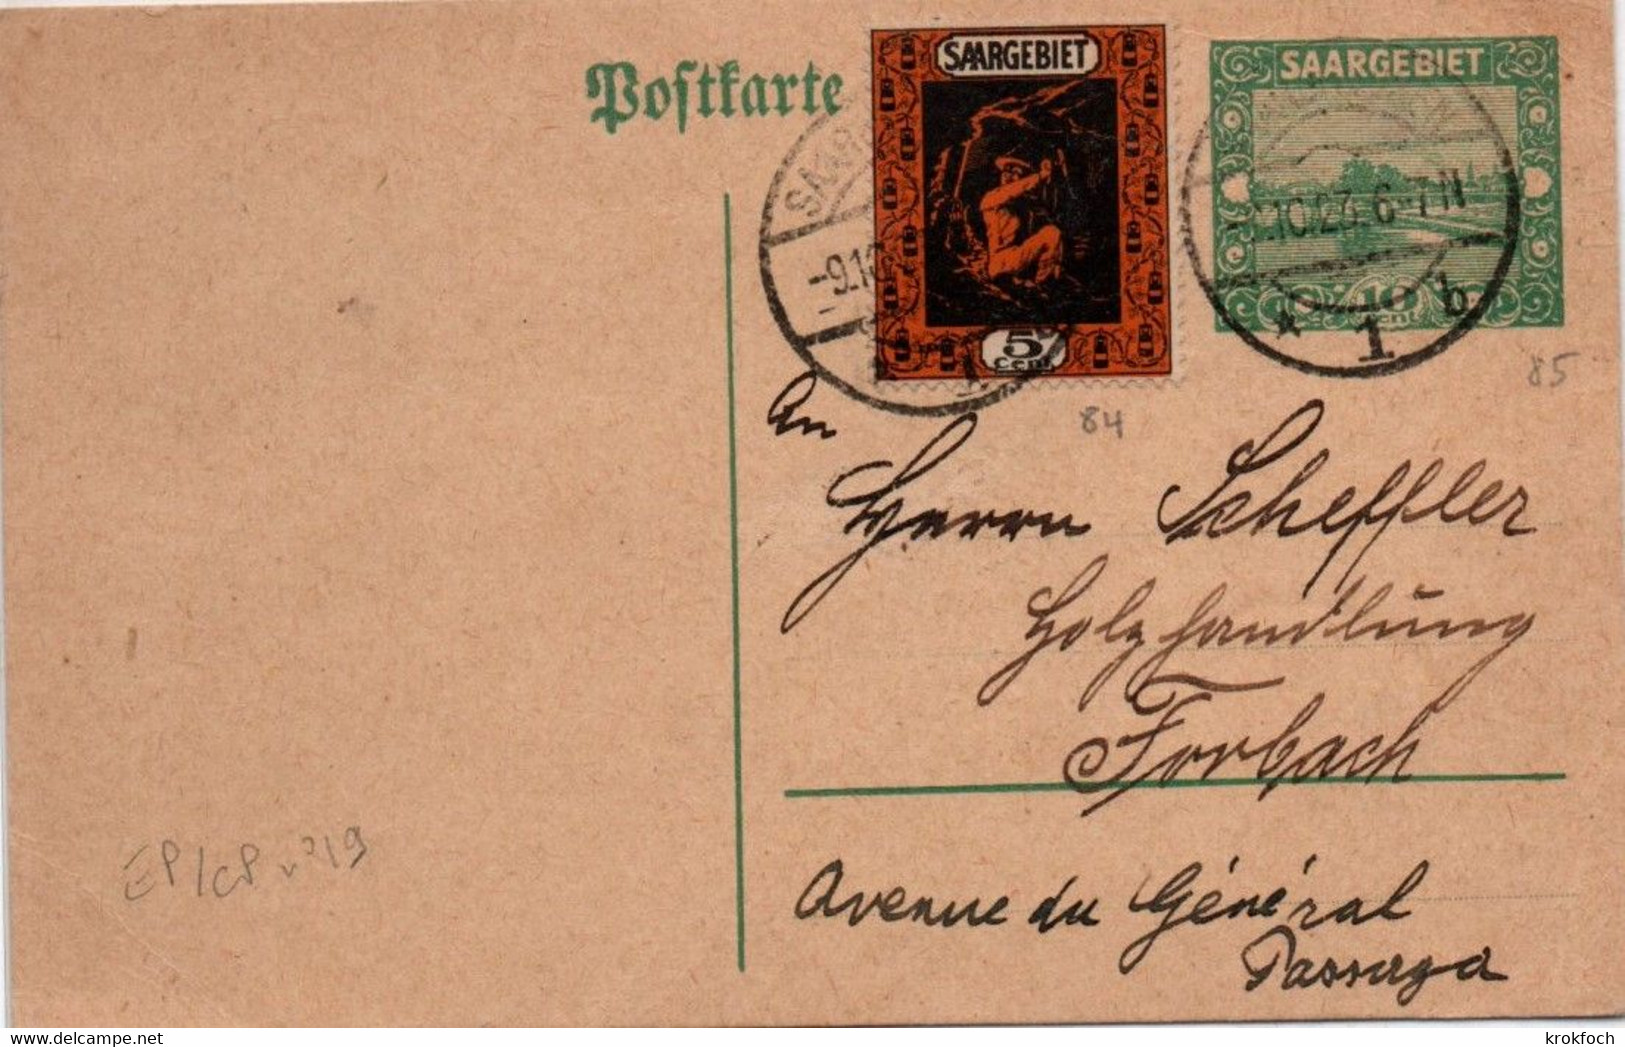 Postkarte
SAARGEBIET
5
Cent.
SAARGEBIET
10
Cent
-9.10.23. 6-7 N
* 1 b
84
85
An
Herrn Scheffler
Holzhandlung
Forbach
Avenue du Général
Passaga
EP/CP n°19
krokfoch